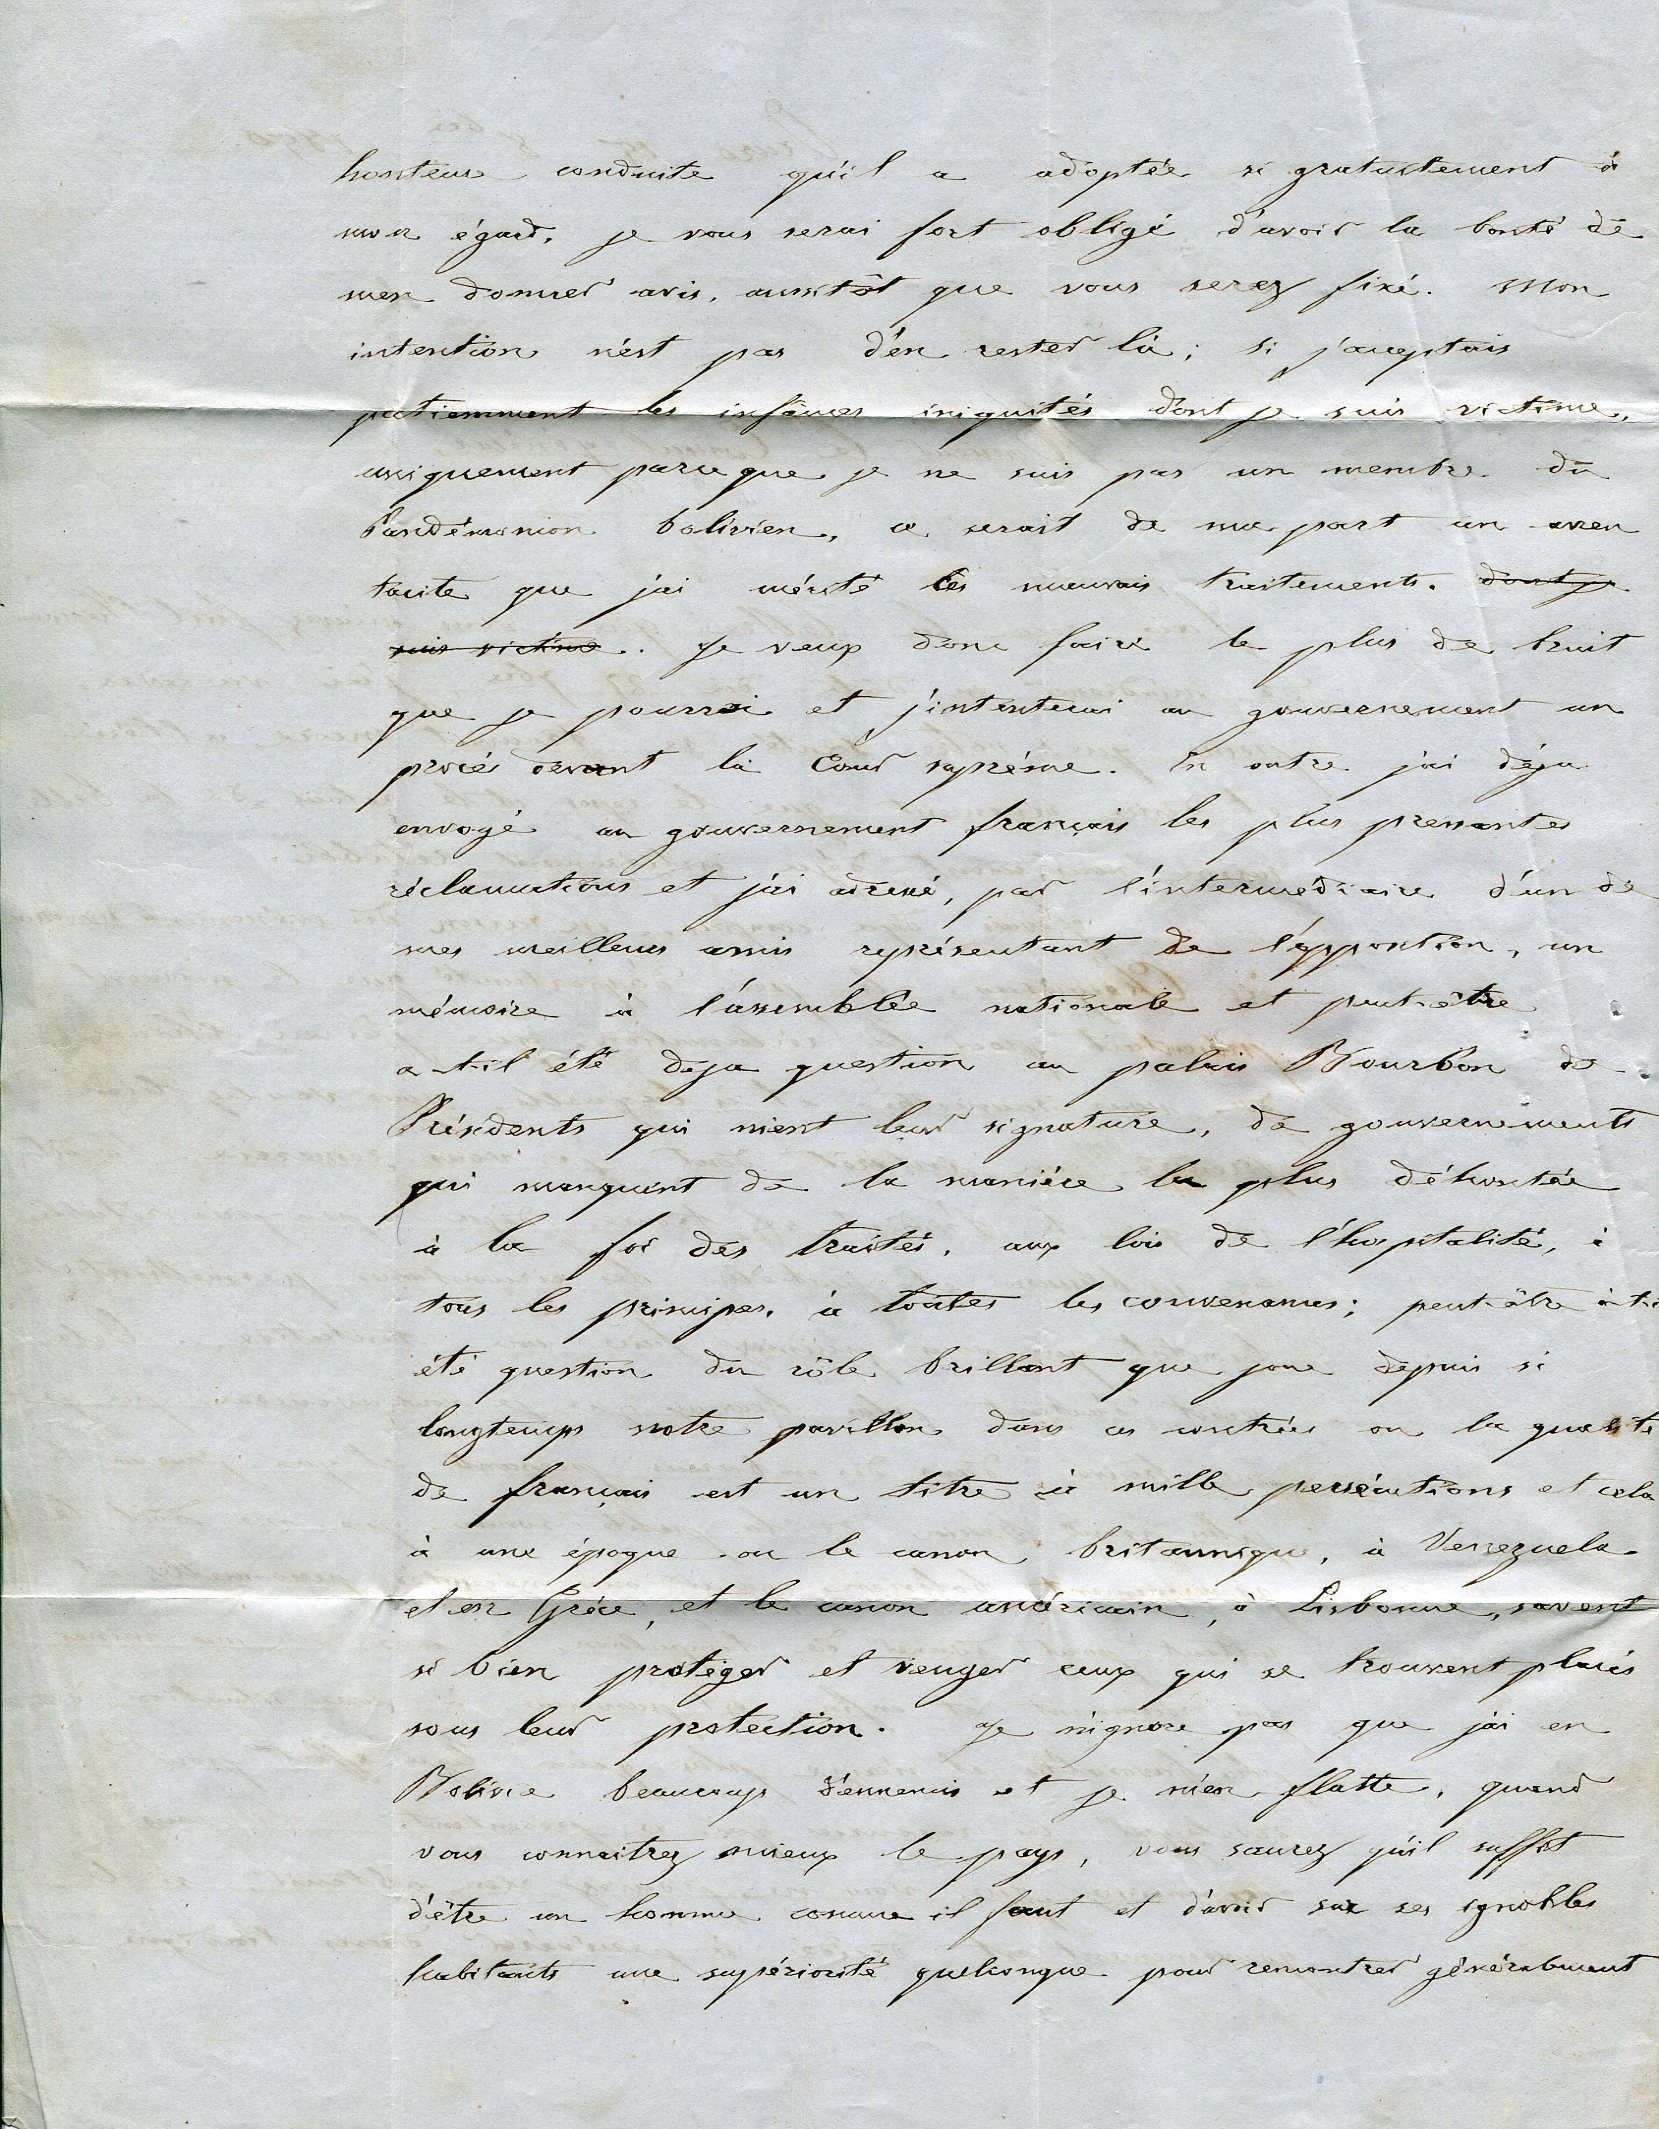 honteuse conduite qu'il a adoptée si gratuitement à
mon égard, je vous serai fort obligé d'avoir la bonté de
m'en donner avis, aussitôt que vous serez fixé. Mon
intention n'est pas d'en rester là; si j'acceptais
patiemment les infâmes iniquités dont je suis victime,
uniquement parceque je ne suis pas un membre du
Pandémonion bolivien, ce serait de ma part un aveu
tacite que j'ai mérité les mauvais traitements. dont je
suis victime. Je veux donc faire le plus de bruit
que je pourrai et j'intenterai au gouvernement un
procès devant la Cour suprême. En outre j'ai déja
envoyé au gouvernement français les plus pressantes
réclamations et j'ai adressé, par l'intermédiaire d'un de
mes meilleurs amis représentant de l'opposition, un
mémoire à l'assemblée nationale et peut-être
a-t-il été deja question au palais Bourbon de
Présidents qui nient leur signature, de gouvernements
qui manquent de la manière la plus déhontée
à la foi des traités, aux lois de l'hospitalité, à
tous les principes, à toutes les convenances; peut-être a-t-i
été question du rôle brillant que joue depuis si
longtemps notre pavillon dans ces contrées ou la qualité
de français est un titre à mille persécutions et cela
à une époque ou le canon britannique, à Venezuela
et en Grèce, et le canon américain, à Lisbonne, savent
si bien protéger et venger ceux qui se trouvent placés
sous leur protection. Je n'ignore pas que j'ai en
Bolivie beaucoup d'ennemis et je m'en flatte, quand
vous connaitrez mieux le pays, vous saurez qu'il suffit
d'être un homme comme il faut et d'avoir sur ses ignobles
habitants une supériorité quelconque pour rencontrer généralement